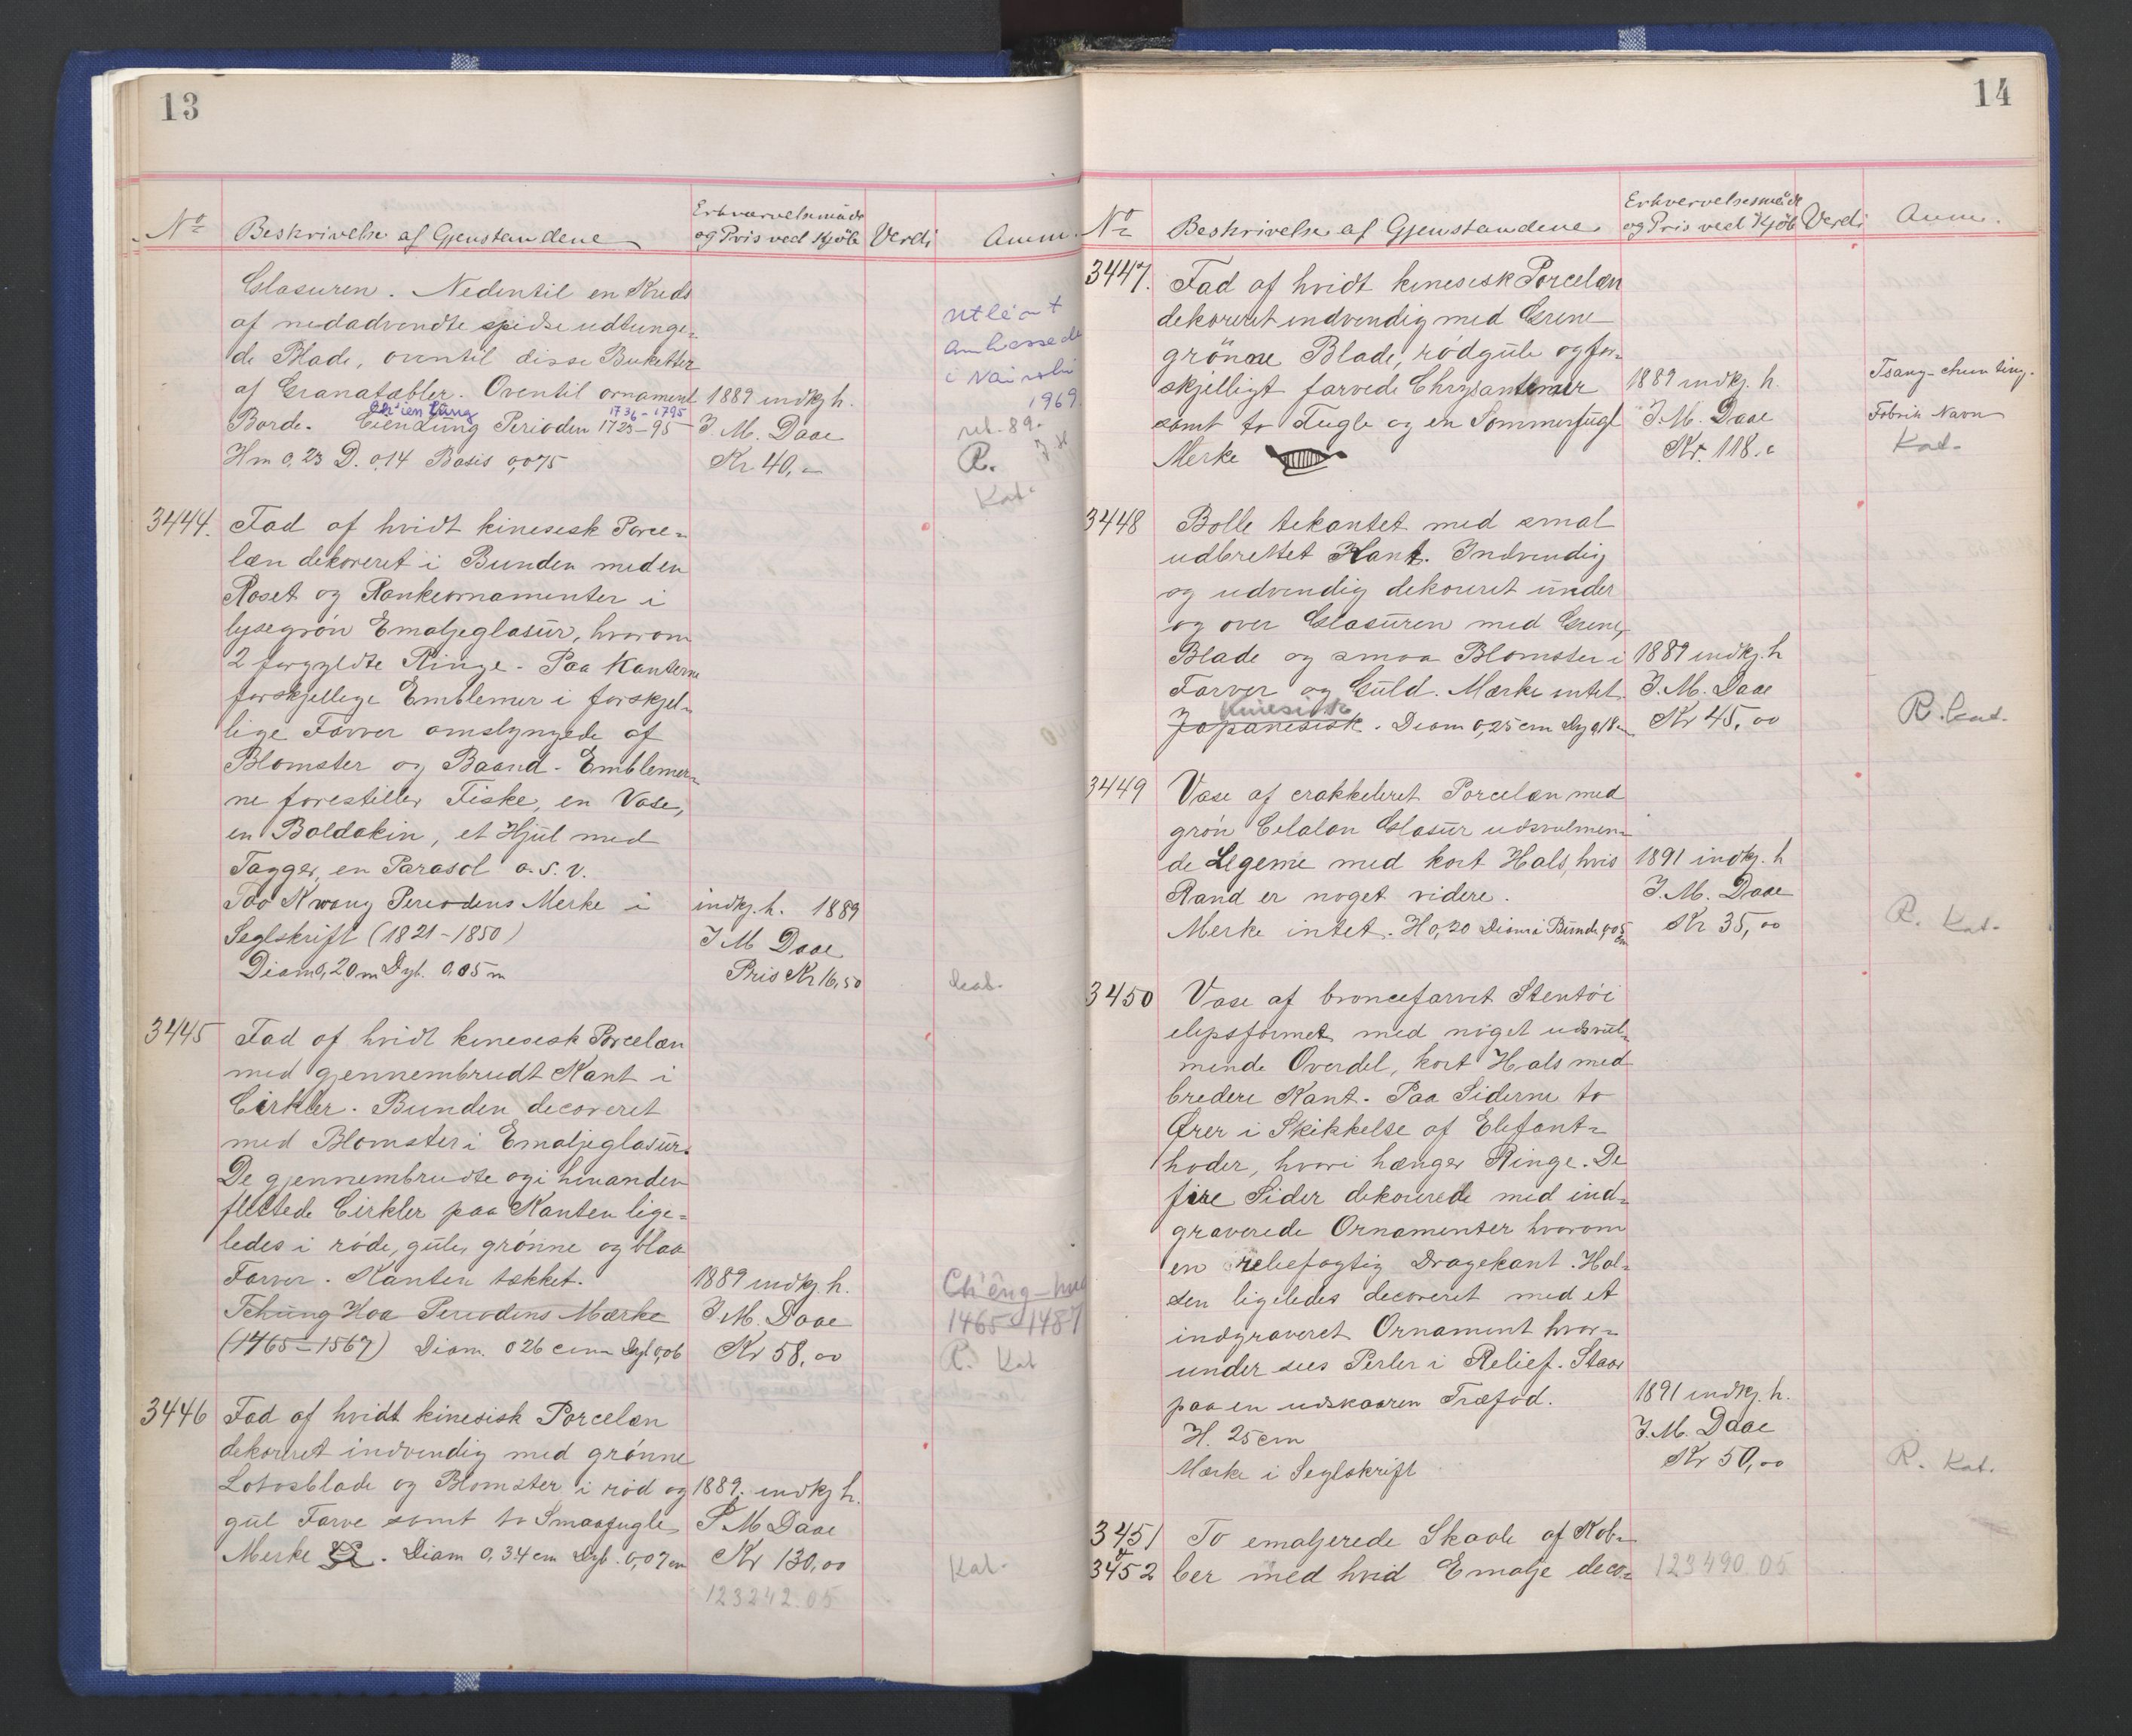 13
No Beskrivelse af Gjenstandene Erhvervelsesmåde Verdi Anm.
og Pris ved Kjöb
Glasuren. Nedentil en Kreds
af nedadvendte spidse udtunge-
de Blade, oventil disse Buketter
af Granatæbler. Oventil ornament
Ch'ien Lung 1736-1795
Borde. Cienlung Perioden 1723-95
Hm 0,23 D. 0,14 Basis 0,075
1889 indkj h.
J. M. Daae
Kr. 40,-
utlånt
ambassaden
i Nairobi
1969
ret. 89.
R.
Kat.
3444. Fad af hvidt kinesisk Porce-
læn dekoreret i Bunden med en
Roset og Rankeornamenter i
lysegrön Emaljeglasur, hvorom
2 forgyldte Ringe. Paa Kanterne
forskjellige Emblemer i forskjel-
lige Farver omslyngede af
Blomster og Baand. Emblemer-
ne forestiller Fiske, en Vase,
en Baldakin, et Hjul med
Tagger, en Parasol o.s.v.
Tao Kwang Periodens Merke i
Seglskrift (1821-1850)
Diam 0,20m Dyb. 0,05m
indkj. h. 1889
J M Daae
Pris Kr 16,50
Kat.
3445 Fad af hvidt kinesisk Porcelæn
med gjennembrudt Kant i
Cirkler. Bunden decoreret
med Blomster i Emaljeglasur.
De gjennembrudte og i hinanden
flettede Cirkler paa Kanten lige-
ledes i röde, gule, grönne og blaa
Farver. Kanten takket.
Tchung Hoa Periodens Mærke
(1465-1567) Diam. 0 26 cm Dyb 0,06
1889 indkj. h.
J. M. Daae
Kr 58,00
Ch'êng-hua
1465-1487
R. Kat
3446 Fad af hvidt kinesisk Porcelæn
dekoreret indvendig med grönne
Lotosblade og Blomster i röd og
gul Farve samt to Smaafugle
Merke . Diam 0,34 cm Dyb. 0,07 cm
1889. indkj h.
J M Daae
Kr 130,00
Kat.
123242.05
14
No Beskrivelse af Gjenstandene Erhvervelsesmåde Verdi Anm.
og Pris ved Kjöb
3447. Fad af hvidt kinesisk Porcelæn
dekoreret indvendig med Grene
grönne Blade, rödgule og for-
skjelligt farvede Chrysantemer
samt to Fugle og en Sommerfugl
Merke
1889 indkj. h.
J. M. Daae
Kr. 118.
Tsang-chun ting.
Fabrik Navn
Kat.
3448 Bolle tekantet med smal
udbrettet Kant. Indvendig
og udvendig dekoreret under
og over Glasuren med Grene,
Blade og smaa Blomster i
Farver og Guld. Mærke intet.
Kinesiske
Japanesisk. Diam 0,25 cm Dyb 0,18
1889 indkj. h
J. M. Daae
Kr 45,00
R. Kat.
3449 Vase af crakkeleret Porcelæn med
grön Celalon Glasur udsvulmen-
de Legeme med kort Hals, hvis
Rand er noget videre.
Merke intet. H 0,20 Diam i Bunde 0,05 cm
1891 indkj. h
J. M. Daae
Kr 35,00
R. Kat.
3450 Vase af broncefarvet Stentöi
elipsformet med noget udsvul-
mende Overdel, kort Hals med
bredere Kant. Paa Siderne to
Ører i Skikkelse af Elefant-
hoder, hvori hænger Ringe. De
fire Sider dekorerede med ind-
graverede Ornamenter hvorom
en reliefagtig Dragekant. Hal-
sen ligeledes decoreret med et
indgraveret Ornament hvor-
under sees Perler i Relief. Staar
paa en udskaaren Træfod.
H. 25 cm
Mærke i Seglskrift
1891 indkj. h.
J. M. Daae
Kr 50,00
R. Kat.
3451 To emaljerede Skaale af Kob-
3452 ber med hvid Emalje deco-
123490.05